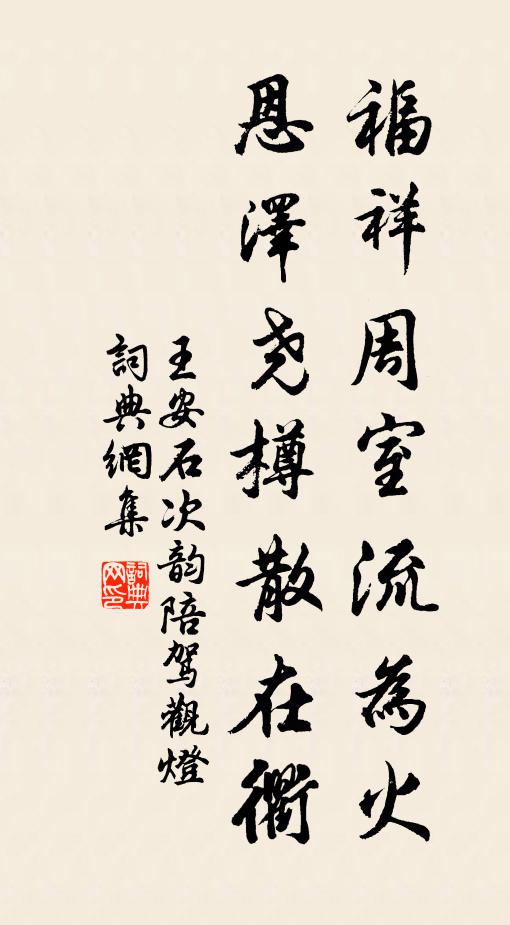 福祥周室流為火
恩澤尧樽散在衢
王安石次韵陪驾觀燈
詞典網集
詞典网印